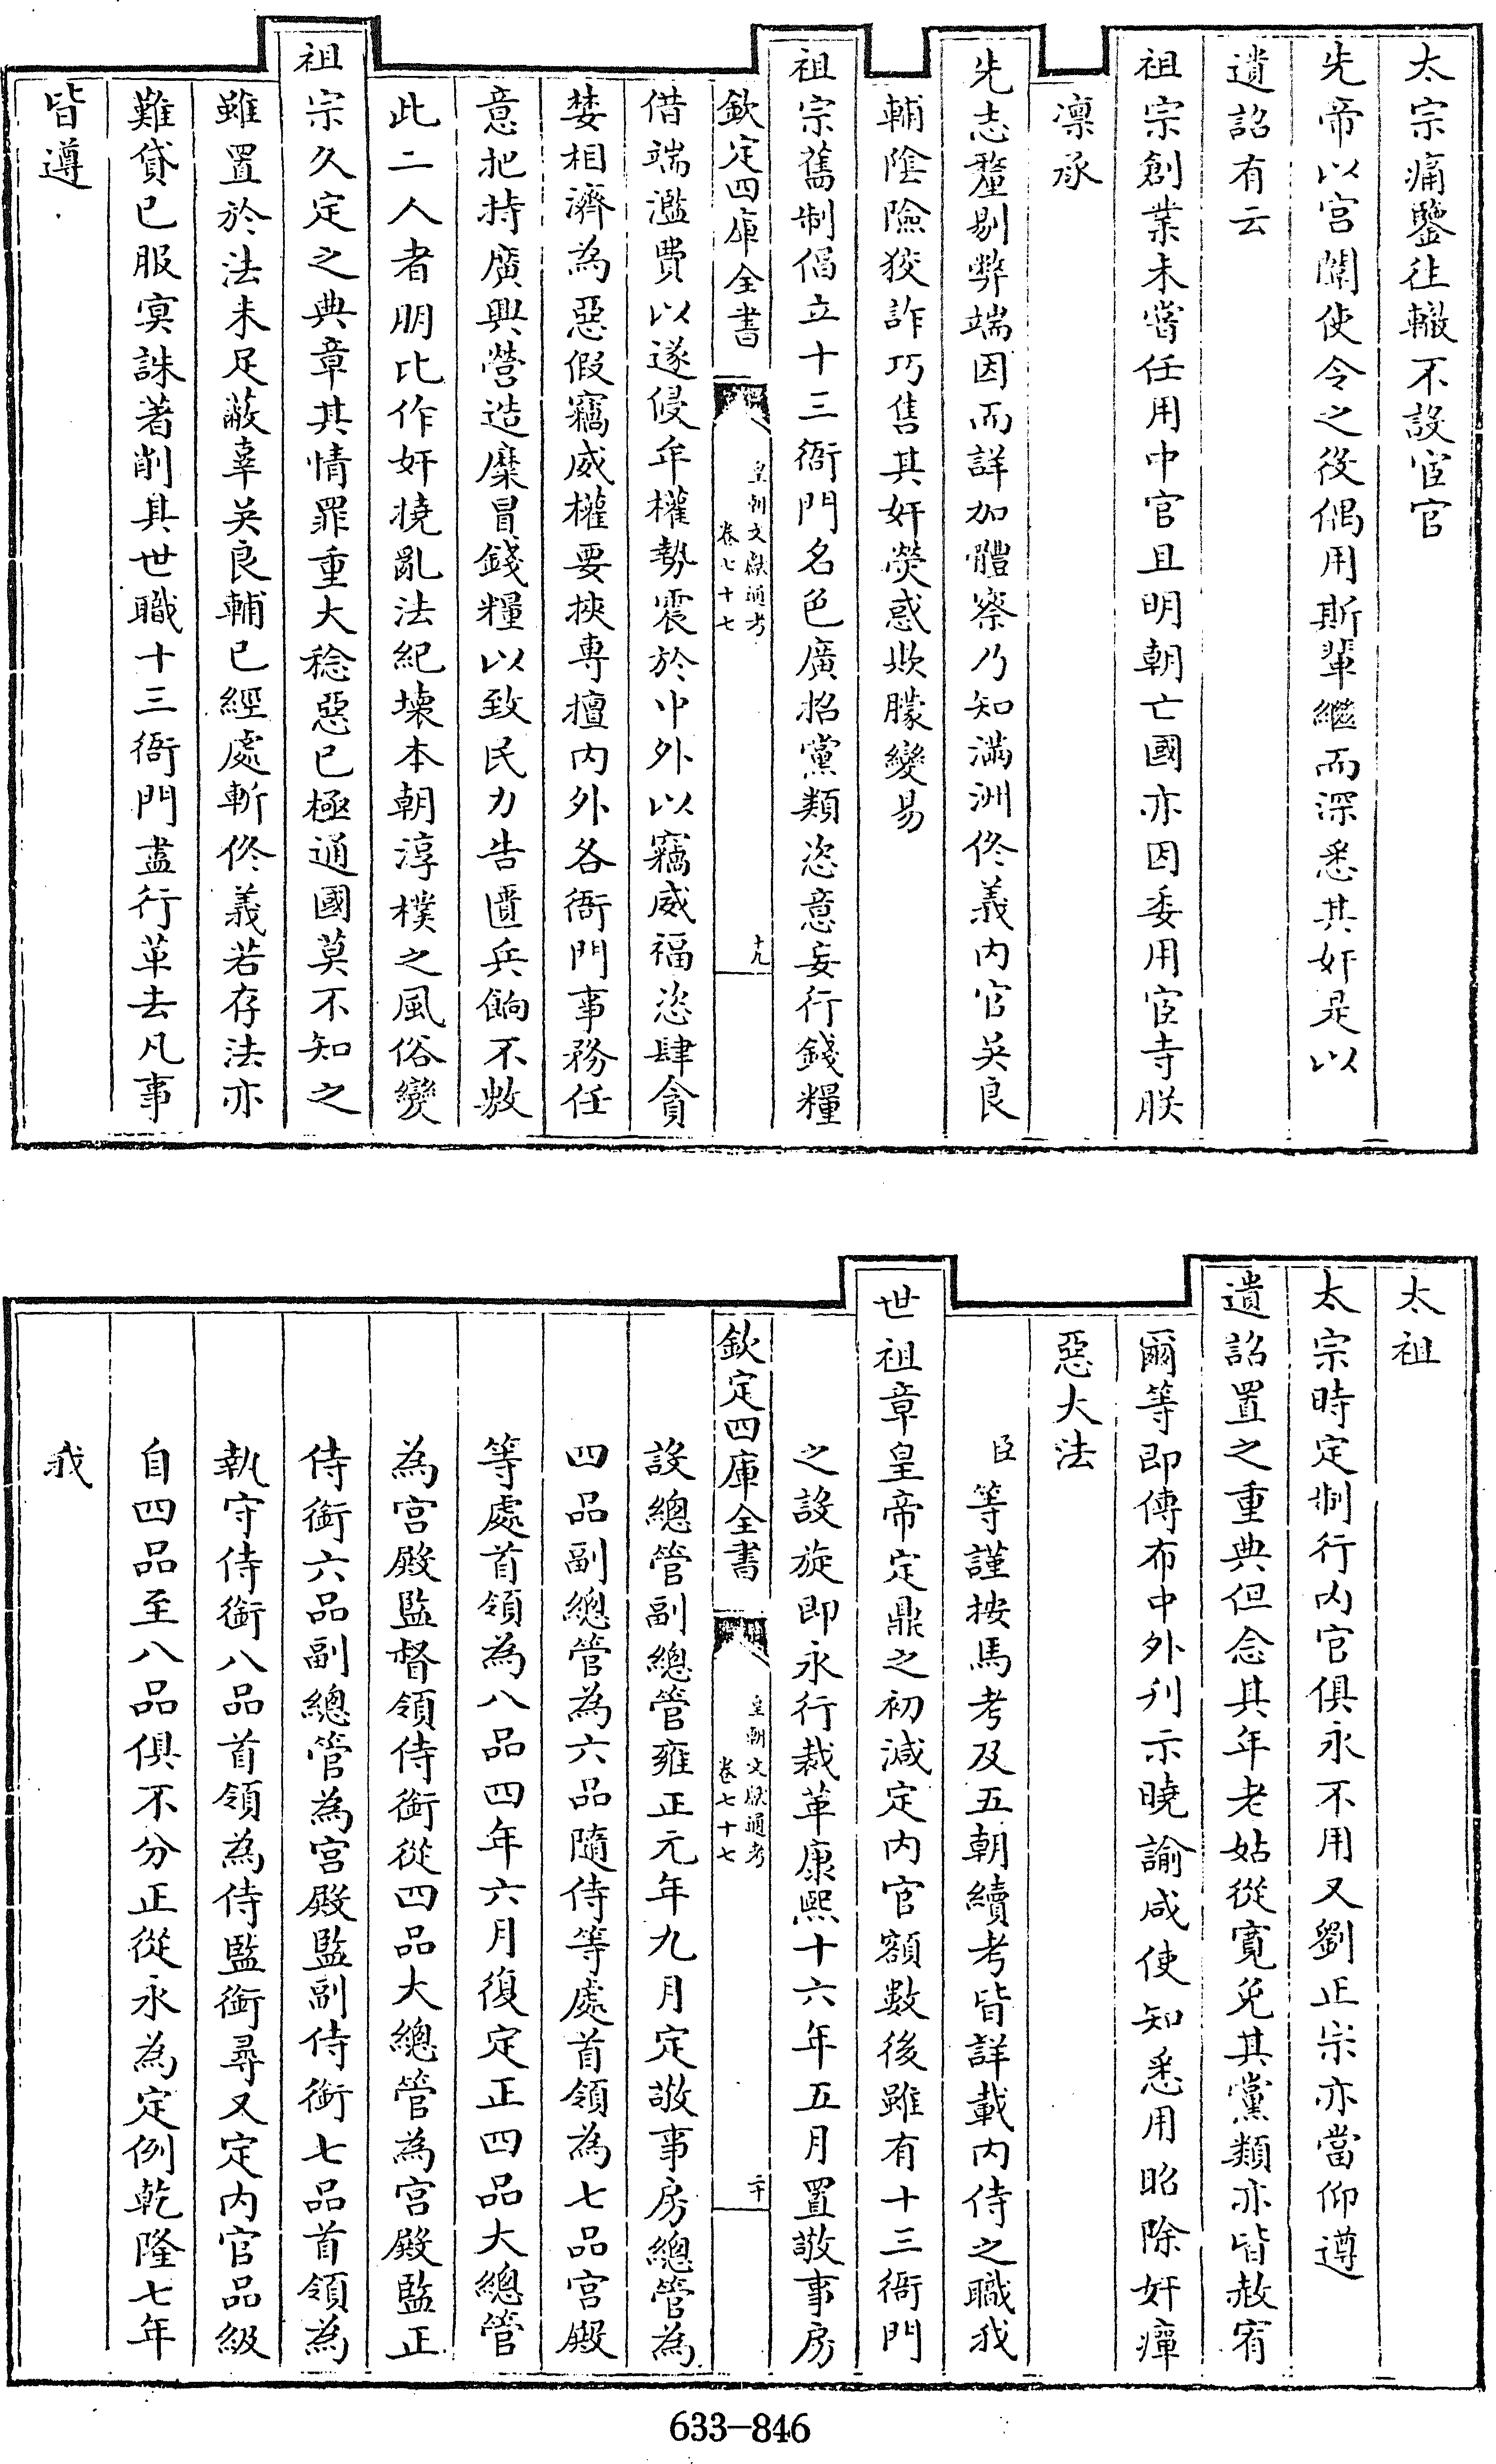 太宗痛鑒往轍不設宦官
先帝以宮闈使令之役偶用斯輩繼而深悉其奸是以
遺詔有云
祖宗創業未嘗任用中官且明朝亡國亦因委用宦寺朕
凜承
先志釐剔弊端因而詳加體察乃知滿洲佟義內官吳良
輔陰險狡詐巧售其奸熒惑欺朦變易
祖宗舊制倡立十三衙門名色廣招黨類恣意妄行錢糧
欽定四庫全書
皇朝文獻通考
卷七十七
十九
借端濫費以遂侵牟權勢震於中外以竊威福恣肆貪
婪相濟為惡假竊威權要挾專擅內外各衙門事務任
意把持廣興營造糜冒錢糧以致民力告匱兵餉不敷
此二人者朋比作奸撓亂法紀壞本朝淳樸之風俗變
祖宗久定之典章其情罪重大稔惡已極通國莫不知之
雖置於法未足蔽辜吳良輔已經處斬佟義若存法亦
難貸已服冥誅著削其世職十三衙門盡行革去凡事
皆遵
太祖
太宗時定制行內官俱永不用又劉正宗亦當仰遵
遺詔置之重典但念其年老姑從寬免其黨類亦皆赦宥
爾等即傳布中外刋示曉諭咸使知悉用昭除奸癉
惡大法
臣等謹按馬考及五朝續考皆詳載內侍之職我
世祖章皇帝定鼎之初減定內官額數後雖有十三衙門
之設旋即永行裁革康熙十六年五月置敬事房
欽定四庫全書
皇朝文獻通考
卷七十七
二十
設總管副總管雍正元年九月定敬事房總管為
四品副總管為六品隨侍等處首領為七品宮殿
等處首領為八品四年六月復定正四品大總管
為宮殿監督領侍銜從四品大總管為宮殿監正
侍銜六品副總管為宮殿監副侍銜七品首領為
執守侍銜八品首領為侍監銜尋又定內官品級
自四品至八品俱不分正從永為定例乾隆七年
我
633-846